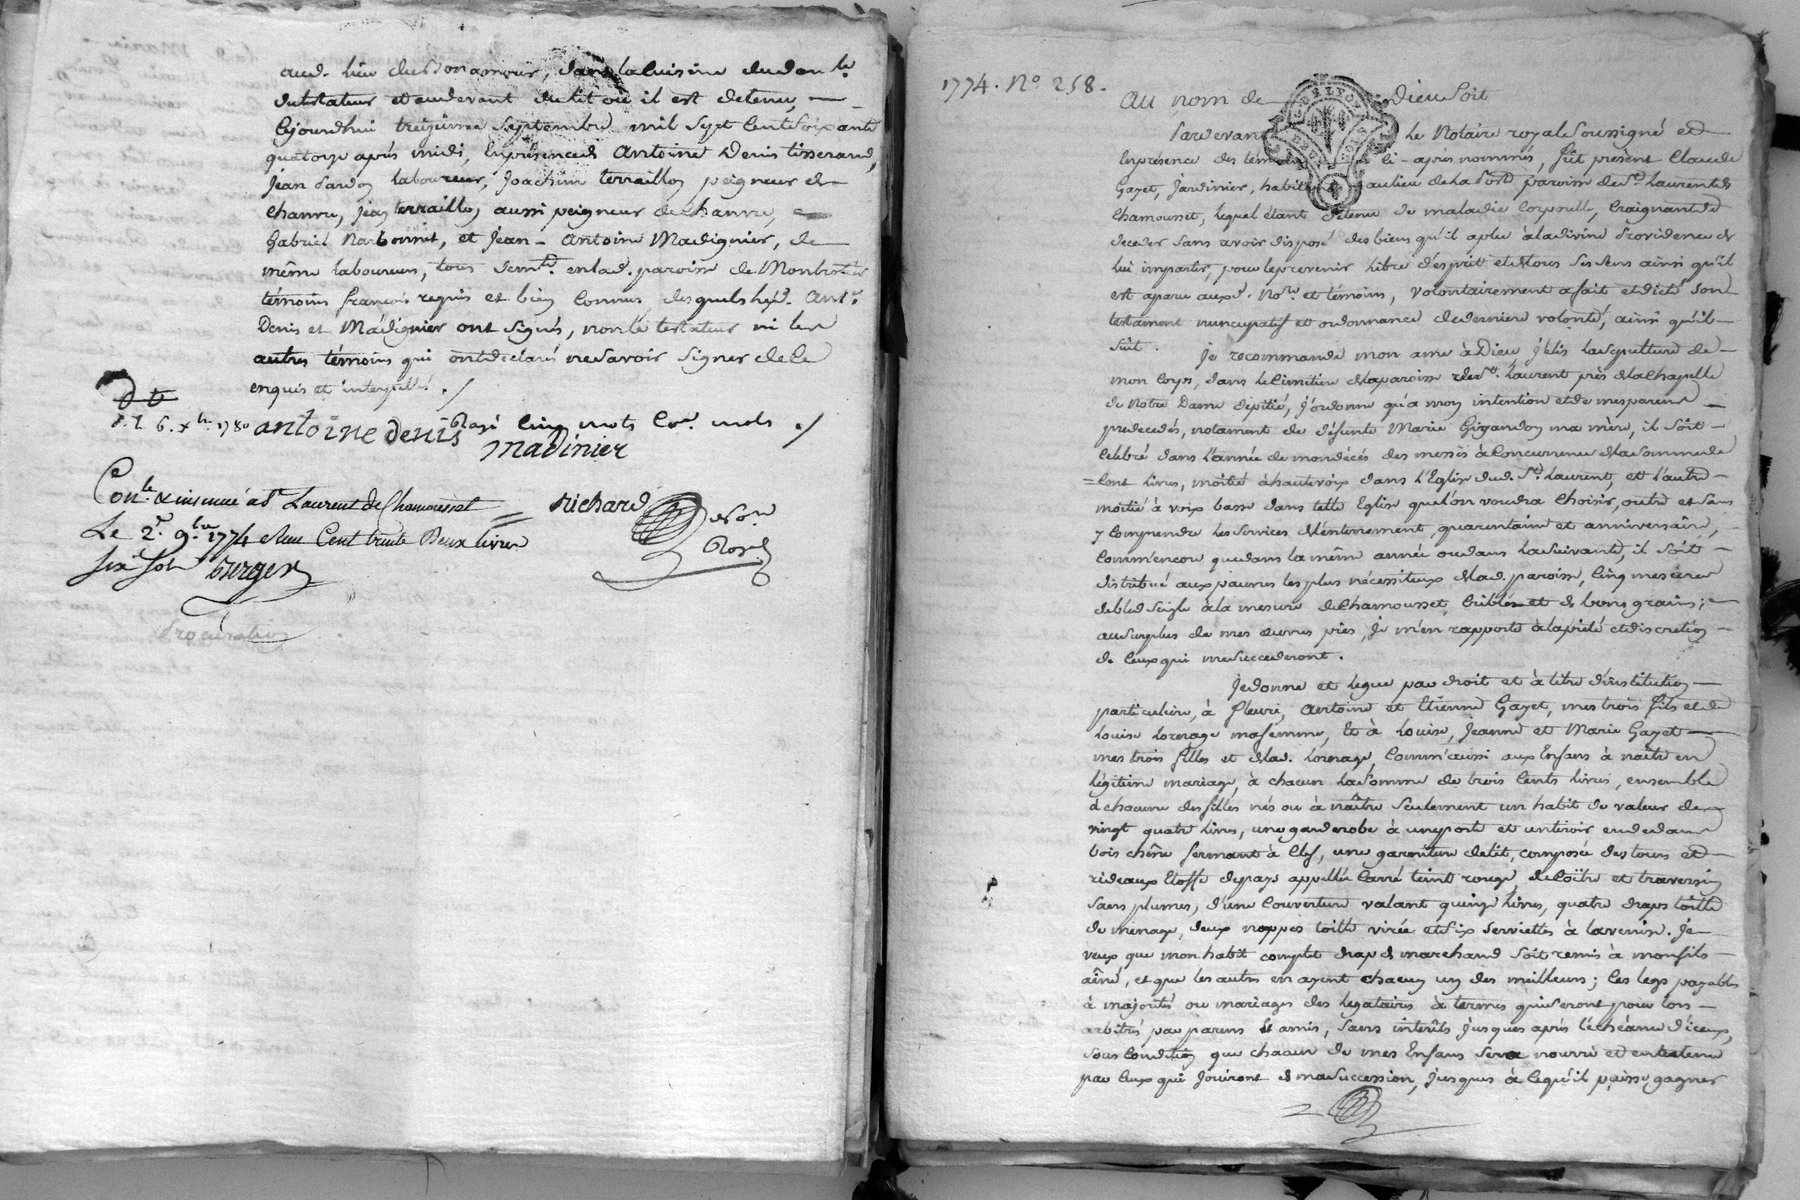 aud. lieu du Bonamour, dans la Cuisine du dom.le
du testateur et au devant du lit où il est detenu,
Cejourdhui treizieme Septembre mil Sept Cent Soixante
quatorze aprés midi, En présence de Antoine Denis tisserand,
Jean laboureur, Joachim terraillon peigneur de
Chanvre, Jean terraillon aussi peigneur de Chanvre,
Gabriel Narbonnet, et Jean-Antoine Madignier, de
même laboureurs, tous dem.ts en lad. paroisse de
témoins françois requis et bien Connus, desquels lesd. Ant.e
Denis et Madignier ont Signés, non le testateur ni les
autres témoins qui ont déclaré ne Savoir Signer de Ce
enquis et interpellés.
6. 1780 antoine denis Rayé Cinq mots mots
madinier
Con.lé & insinué a St Laurent de Chamousset Richard
Le 2.e 9.bre 1774 Reçu Cent trente Deux livres
Six Sols Burger
Procuration
1774. No. 258.
Au nom de Dieu Soit
Pardevant Le Notaire royal Soussigné et
En présence des témoins Ci-aprés nommés, fût présent Claude
Gayet, Jardinier, habitant au lieu de la Port paroisse de St. Laurent de
Chamousset, lequel étant détenu de maladie Corporelle, Craignant de
deceder Sans avoir disposé des biens qu'il a plu à la divine Providence de
lui impartir, pour le prevenir libre d'esprit et de tous Ses Sens ainsi qu'il
est aparu auxd. No.re et témoins, volontairement a fait et dicté Son
testament nuncupatif et ordonnance de derniere volonté, ainsi qu'il
Suit.
Je recommande mon ame à Dieu, j'élis la Sepulture de
mon Corps, dans le Cimetiere de la paroisse de St. Laurent prés de la Chapelle
de Notre Dame de pitié, j'ordonne qu'a mon intention et de mes parens
predecedés, notament de défunte Marie Gigandon ma mère, il Soit
Celebré dans l'année de mon décés des messes à Concurrence de la Somme de
Cent livres, moitié à haute voix dans l'Eglise dud. St. Laurent, et l'autre
moitié à voix basse dans telle Eglise que l'on voudra Choisir, outre et Sans
y Comprendre les Services d'enterrement, quarantaine et anniversaire,
Comm'encor que dans la même année ou dans la Suivante, il Soit
distribué aux pauvres les plus nécessiteux de lad. paroisse, Cinq mesures
de bled Seigle à la mesure de Chamousset, Criblés et de bons grains;
au Surplus de mes œuvres pies, je m'en rapporte à la piété et discretion
de Ceux qui me Succederont.
Je donne et legue par droit et à titre d'institution
particuliere, à fleuri, Antoine et Etienne Gayet, mes trois fils et de
Louise Lorenage ma femme, Et à Louise, Jeanne et Marie Gayet
mes trois filles et de lad. Lorenage, Comm'aussi aux Enfans à naitre en
légitime mariage, à chacun la Somme de trois Cents livres, ensemble
à chacune des filles nés ou à naître Seulement un habit de valeur de
vingt quatre livres, une garderobe à une porte et un tiroir en dedans
bois chêne fermant à Clef, une garniture de lit, composée des tours et
rideaux Etoffe de pays appellée Carré teint rouge, de Coître et traversin
Sans plumes, d'une Couverture valant quinze livres, quatre draps toille
de menage, deux nappes toille virée et Six Serviettes à la venise. Je
veux que mon habit complet drap de marchand Soit remis à mon fils
aîné, et que les autres en ayent chacun un des meilleurs; les legs payables
à majorités ou mariages des legataires à termes qui Seront pour lors
arbitrés par parens et amis, Sans intérêts jusques après l'échéance d'iceux,
Sous Condition que chacun de mes Enfans Sera nourri et entretenu
par Ceux qui jouiront de ma Succession, jusques à Ce qu'il puisse gagner